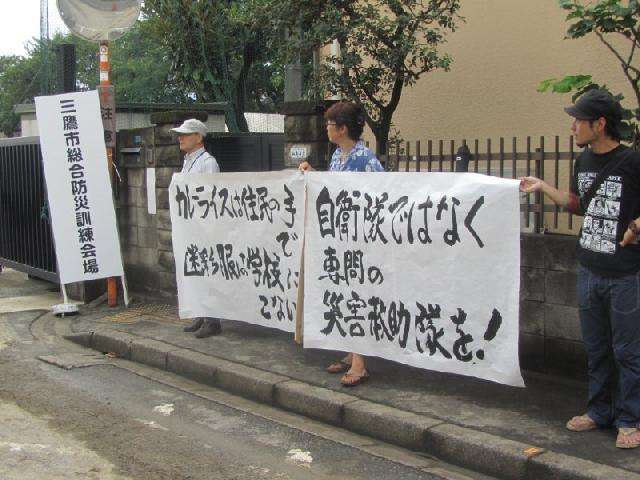 三鷹市総合防災訓練会場
カレーライスは住民の手で
迷彩服は学校にこないで
自衛隊ではなく
専門の
災害救助隊を!